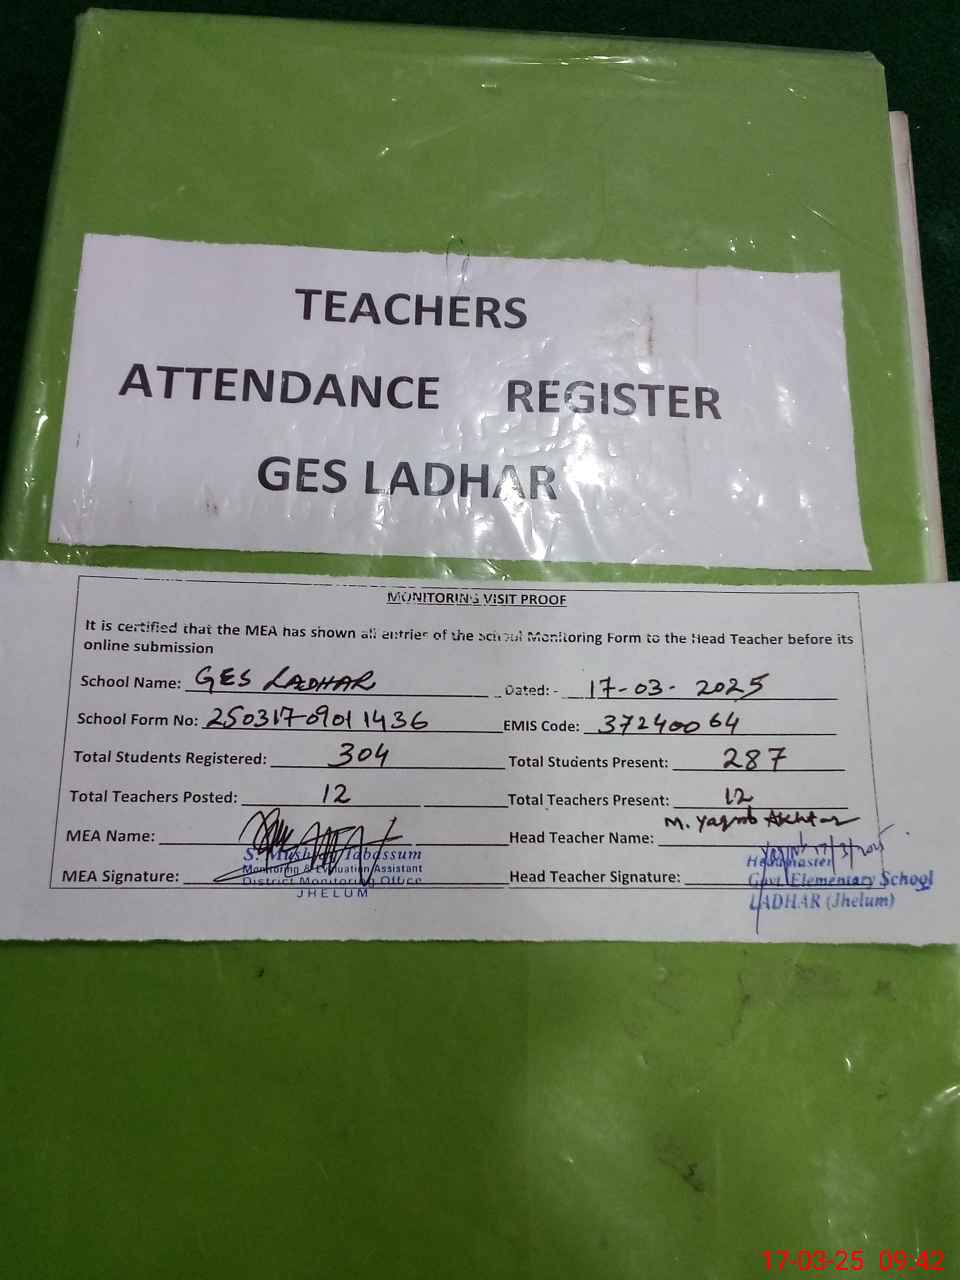 TEACHERS
ATTENDANCE REGISTER
GES LADHAR
MONITORING VISIT PROOF
It is certified that the MEA has shown all entries of the School Monitoring Form to the Head Teacher before its
online submission
School Name: GES LADHAR Dated: - 17-03-2025
School Form No: 250317-0901 1436 EMIS Code: 37240064
Total Students Registered: 304 Total Students Present: 287
Total Teachers Posted: 12 Total Teachers Present: 12
MEA Name: Head Teacher Name: M. Yaqub Akhtar
S. Tabassum 17/3/2025
Monitoring & Evaluation Assistant Headmaster
MEA Signature: Head Teacher Signature:
District Monitoring Office Govt. Elementary School
JHELUM LADHAR (Jhelum)
17-03-25 09:42